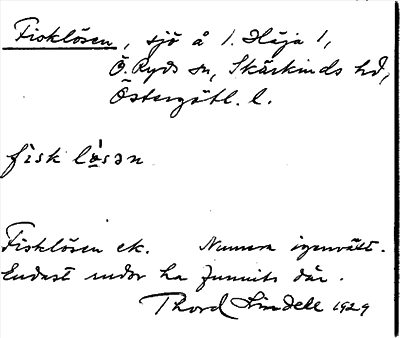 Fisklösen, sjö å 1. Höja 1,
Ö. Ryds sn, Skärkinds hd,
Östergötl. l.
fisk lösən
Fisklösen ek. Numera igenväxt.
Endast rudor ha funnits där.
Thord Lindell 1929